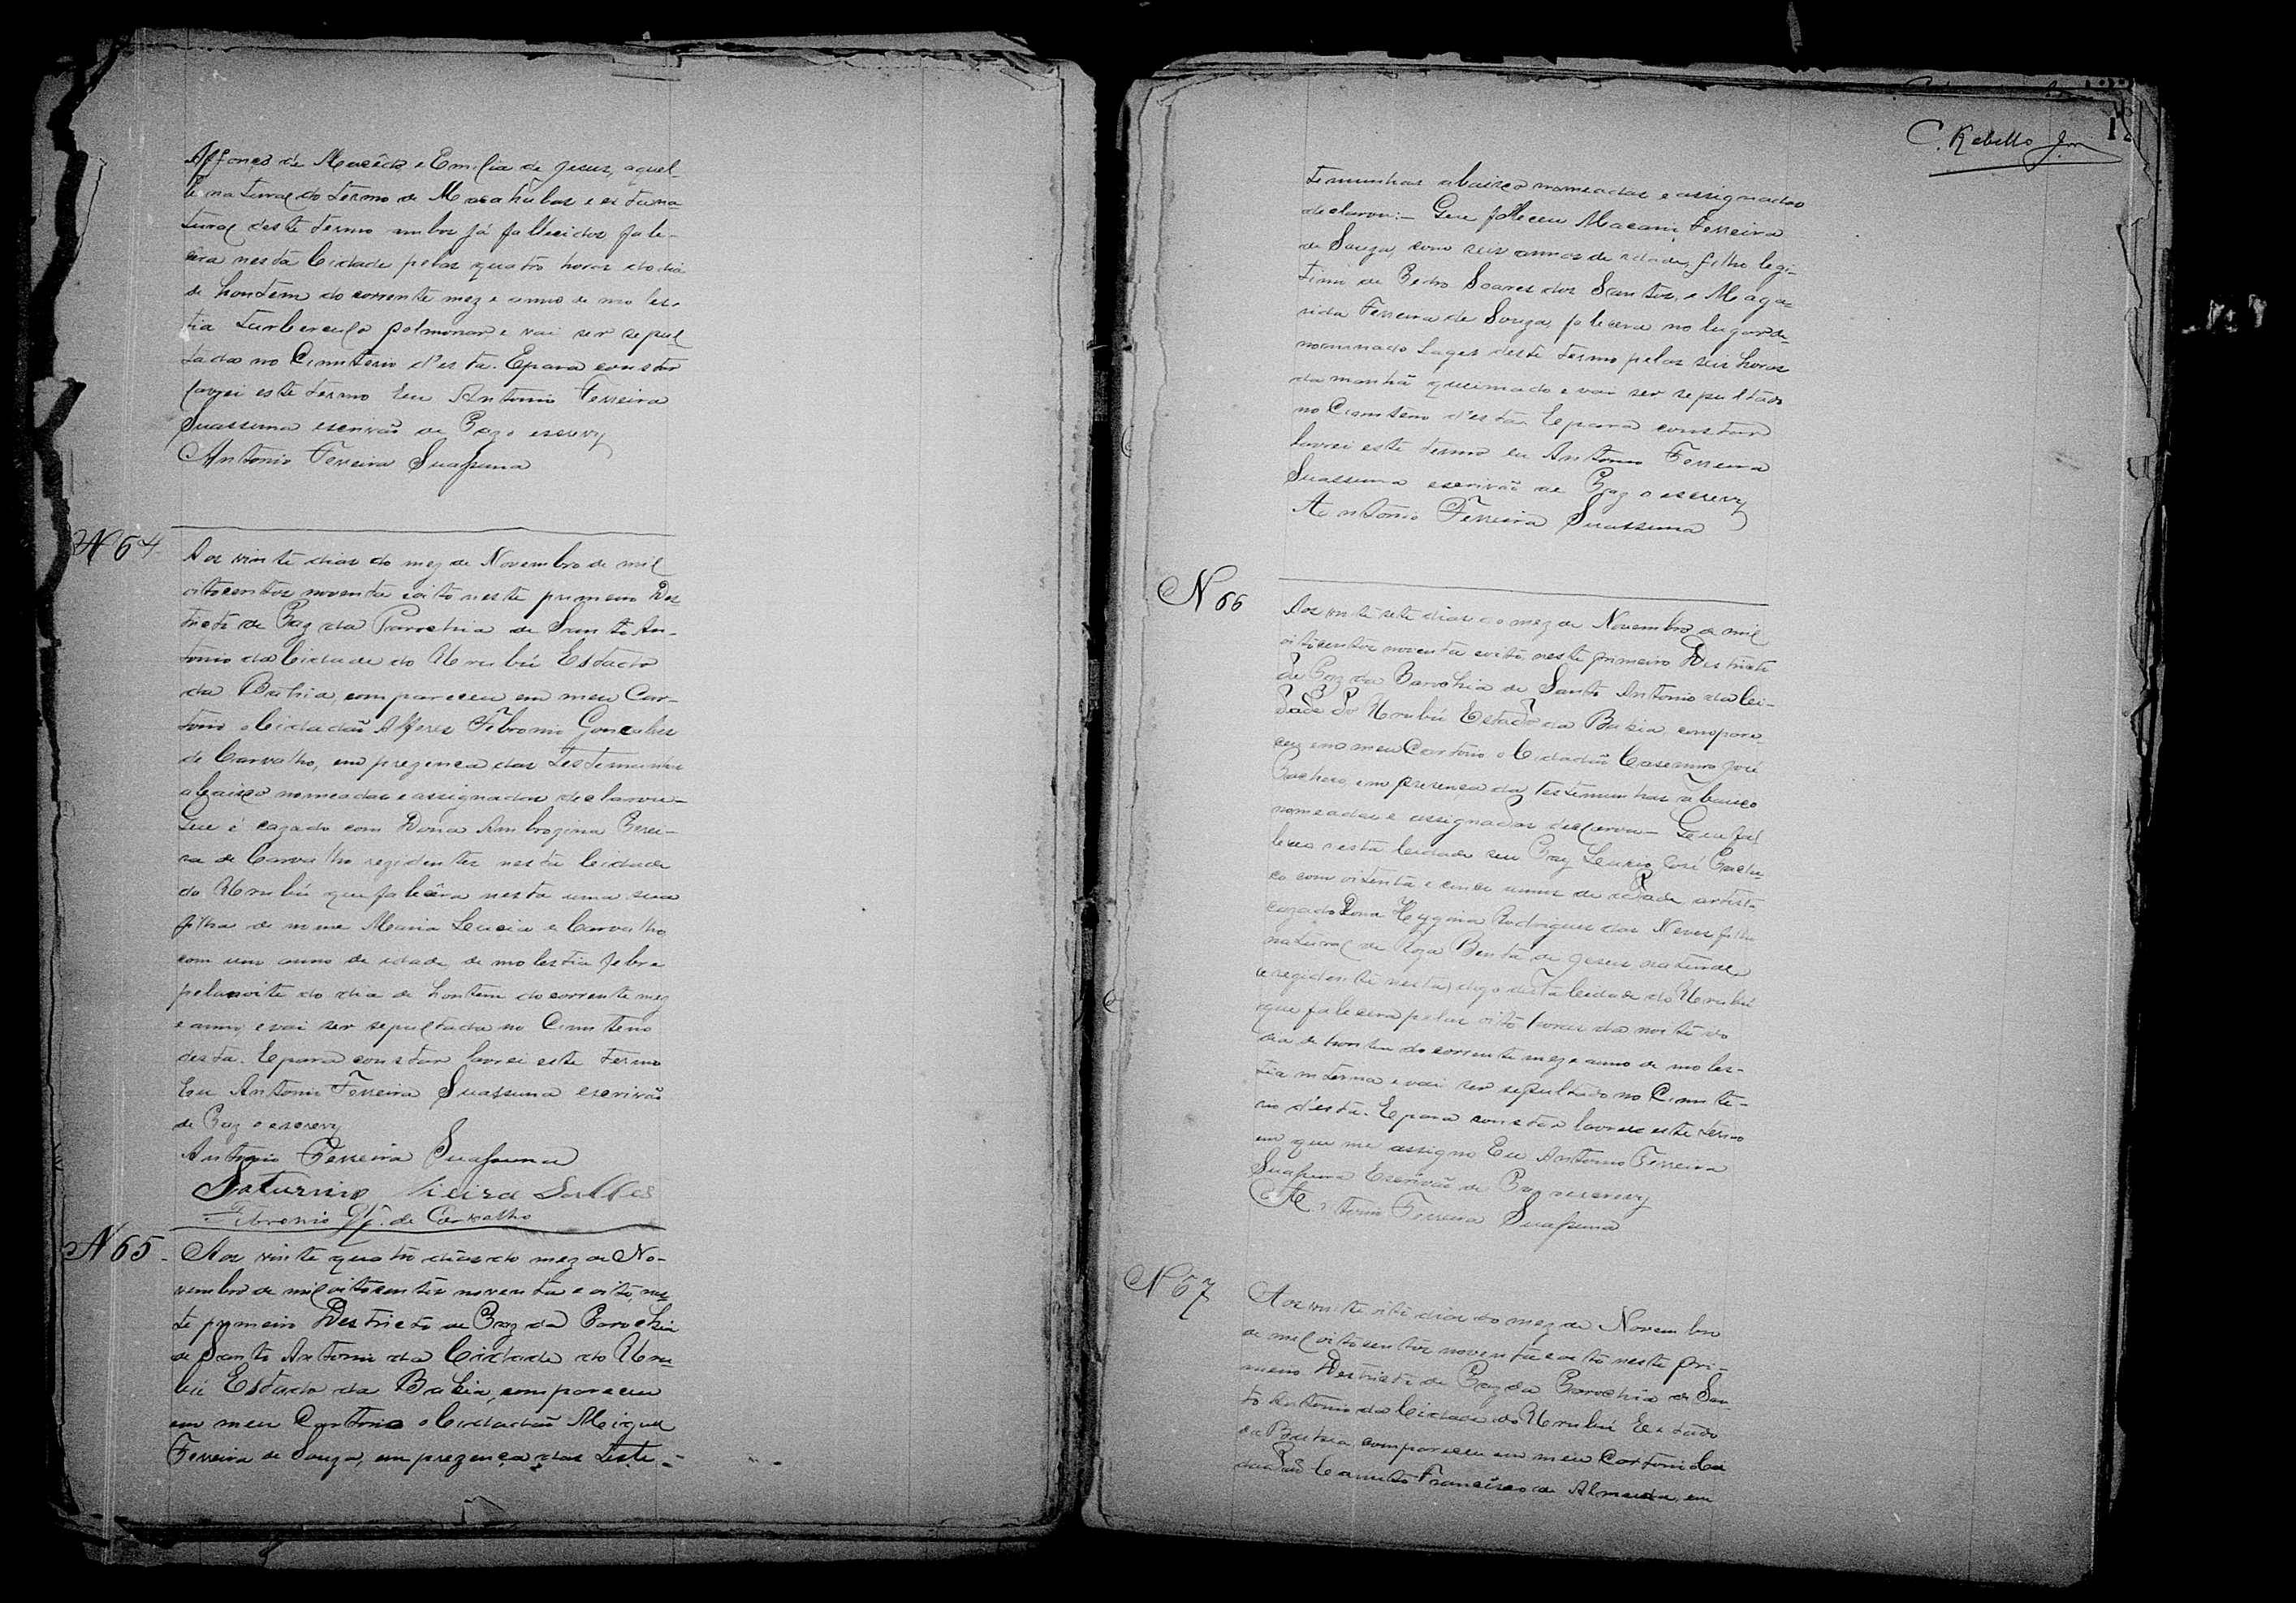 Affonço de Macêdo e Emilia de Jesus, aquel-
le natural do termo de Macahubas e esta na
tural deste termo ambos já fallecidos fale-
cera nesta Cidade pelas quatro horas do dia
de hontem do corrente mez e anno de moles-
tia turberculo polmonar e vai ser sepul
tado no Cimiterio d'esta. E para constar
lavrei este termo Eu Antonio Ferreira
Suassuna escrivão de Paz o escrevy
Antonio Ferreira Suassuna
N 64
Aos vinte dias do mez de Novembro de mil
oitocentos noventa e oito neste primeiro Des
tricto de Paz da Parochia de Santo An-
tonio da Cidade do Urubú Estado
da Bahia, compareceu em meu Car-
torio o Cidadão Alferes Febronio Gonçalves
de Carvalho, em prezença das testemunhas
abaixo nomeadas e assignadas declarou-
Que é cazado com Dona Ambrozina Perei-
ra de Carvalho rezidentes nesta Cidade
do Urubú que falecêra nesta uma sua
filha de nome Maria Lucia de Carvalho
com um anno de idade, de molestia febre
pela noite do dia de hontem do corrente mez
e anno, e vai ser sepultada no Cimiterio
desta. E para constar lavrei este termo
Eu Antonio Ferreira Suassuna escrivão
de Paz o escrevy
Antonio Ferreira Suassuna
Saturnino Vieira Salles
Febronio Glz. de Carvalho
N 65
Aos vinte quatro dias do mez de No-
vembro de mil oitocentos noventa e oito, nes
te primeiro Destricto de Paz da Parochia
de Santo Antonio da Cidade do Uru
bú Estado da Bahia, compareceu
em meu Cartorio o Cidadão Miguel
Ferreira de Souza, em prezença das teste-
C. Rebello Jor
temunhas abaixo nomeadas e assignadas
declarou:- Que falleceu Ferreira
de Souza, com seis annos de idade, filho legi-
timo de Pedro Soares dos Santos, e Maga-
rida Ferreira de Souza, falecera no lugar de-
nominado Lages deste termo pelas seis horas
da manhã queimado e vai ser sepultado
no Cimiterio d'esta. E para constar
lavrei este termo eu Antonio Ferreira
Suassuna escrivão de Paz o escrevy
Antonio Ferreira Suassuna
N 66
Aos vinte sete dias do mez de Novembro de mil
oitocentos noventa e oito, neste primeiro Districto
de Paz da Parochia de Santo Antonio da Ci-
dade do Urubú Estado da Bahia, compare-
ceu em meu Cartorio o Cidadão Casemiro José
Pacheco, em presença das testemunhas abaixo
nomeadas e assignadas declarou- Que fal
leceu nesta Cidade seu Pay José Pache
co com oitenta e cinco annos de idade, artista
cazado Dona Hygina Rodrigues das Neves filho
natural de Roza Benta de Jesus natural
e rezidente nesta, digo desta Cidade do Urubú
que falecera pelas oito horas da noite do
dia de hontem do corrente mez e anno de moles-
tia interna e vai ser sepultado no Cimite-
rio d'esta. E para constar lavrei este termo
em que me assigno Eu Antonio Ferreira
Suassuna Escrivão de Paz o escrevy
Antonio Ferreira Suassuna
N 67
Aos vinte oito dias do mez de Novembro
de mil oitocentos noventa e oito neste pri-
meiro Destricto de Paz da Parochia de San-
to Antonio da Cidade do Urubú Estado
da Bahia, compareceu em meu Cartorio o Ci
dadão Canuto Francisco de Almeida, em